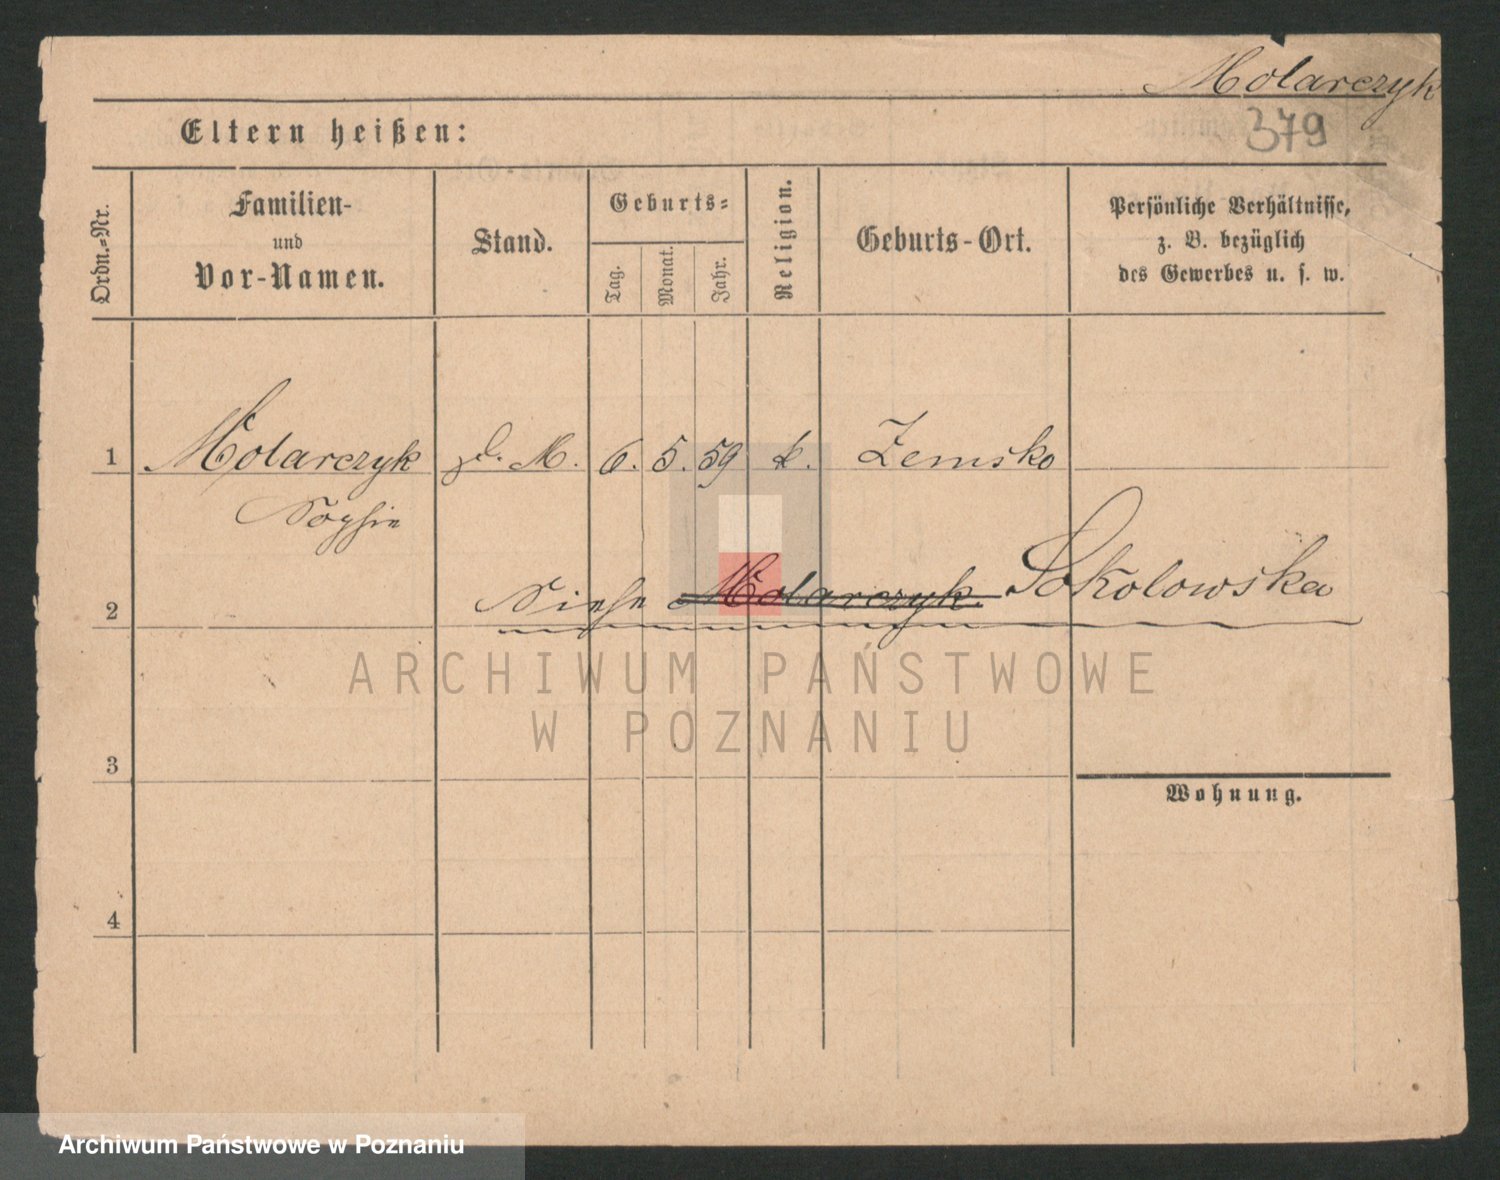 Molarczyk
379
Eltern heißen:
Ordn.=Nr.
Familien-
und
Vor-Namen.
Stand.
Geburts=
Tag.
Monat.
Jahr.
Religion.
Geburts-Ort.
Persönliche Verhältnisse,
z. B. bezüglich
des Gewerbes u. s. w.
1 Molarczyk d. M. 6. 5. 59 k. Zemsko
Sophie
2 Siehe Molarczyk. Sokolowska
ARCHIWUM PAŃSTWOWE
W POZNANIU
3
Wohnung.
4
Archiwum Państwowe w Poznaniu